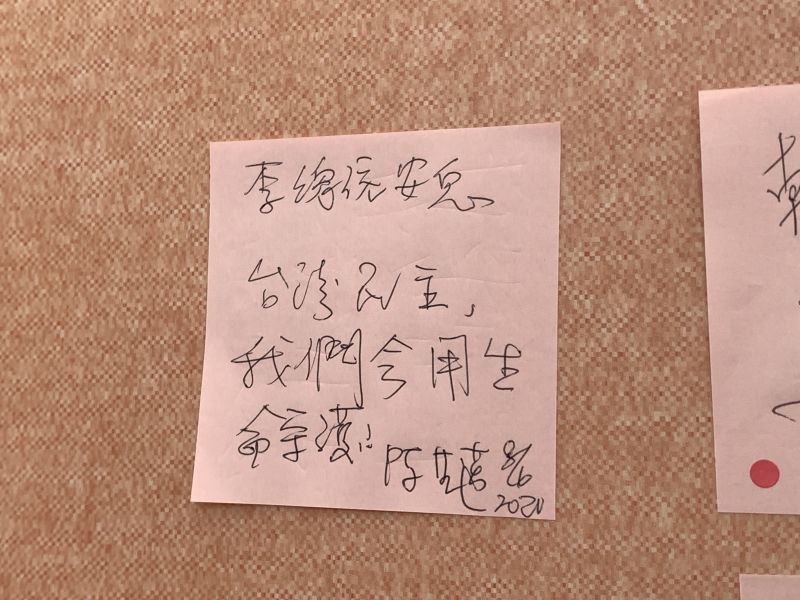 李總統安息
台灣民主，
我們會用生
命守護!!
陳 8/6
2020